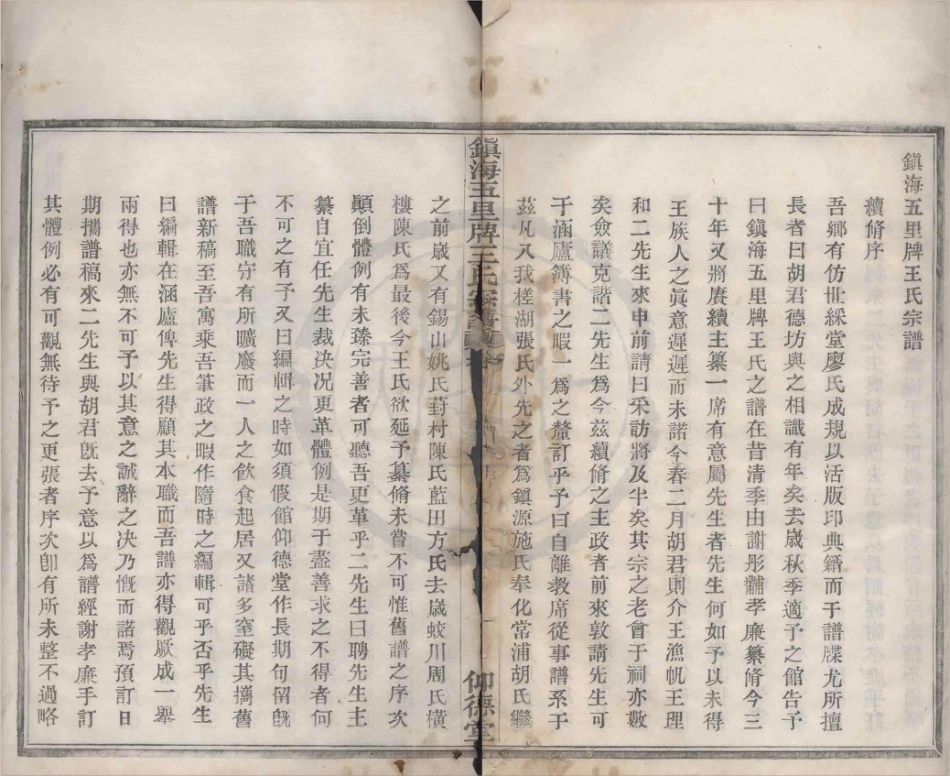 鎮海五里牌王氏宗譜
續脩序
吾鄉有仿世綵堂廖氏成規以活版印典籍而于譜牒尤所擅
長者曰胡君德坊與之相識有年矣去嵗秋季適予之館告予
曰鎮海五里牌王氏之譜在昔清季由謝彤黼孝廉纂脩今三
十年又將賡續主纂一席有意屬先生者先生何如予以未得
王族人之眞意遲遲而未諾今春二月胡君則介王漁帆王理
和二先生來申前請曰采訪將及半矣其宗之老會于祠亦數
矣僉議克諧二先生爲今茲續脩之主政者前來敦請先生可
于涵廬簿書之暇一爲之釐訂乎予曰自離教席從事譜系于
茲凡入我槎湖張氏外先之者爲鎮源施氏奉化常浦胡氏繼
鎮海五里牌王氏宗譜
仰德堂
之前嵗又有錫山姚氏葑村陳氏藍田方氏去嵗蛟川周氏橫
樓陳氏爲最後今王氏欲延予纂脩未嘗不可惟舊譜之序次
顚倒體例有未臻完善者可聽吾更革乎二先生曰聘先生主
纂自宜任先生裁决况更革體例是期于盡善求之不得者何
不可之有予又曰編輯之時如須假館仰德堂作長期句留旣
于吾職守有所曠廢而一人之飮食起居又諸多窒礙其擕舊
譜新稿至吾寓乘吾筆政之暇作隨時之編輯可乎否乎先生
曰編輯在涵廬俾先生得顧其本職而吾譜亦得觀厥成一舉
兩得也亦無不可予以其意之誠辭之决乃慨而諾焉預訂日
期擕譜稿來二先生與胡君旣去予意以爲譜經謝孝廉手訂
其體例必有可觀無待予之更張者序次卽有所未整不過略